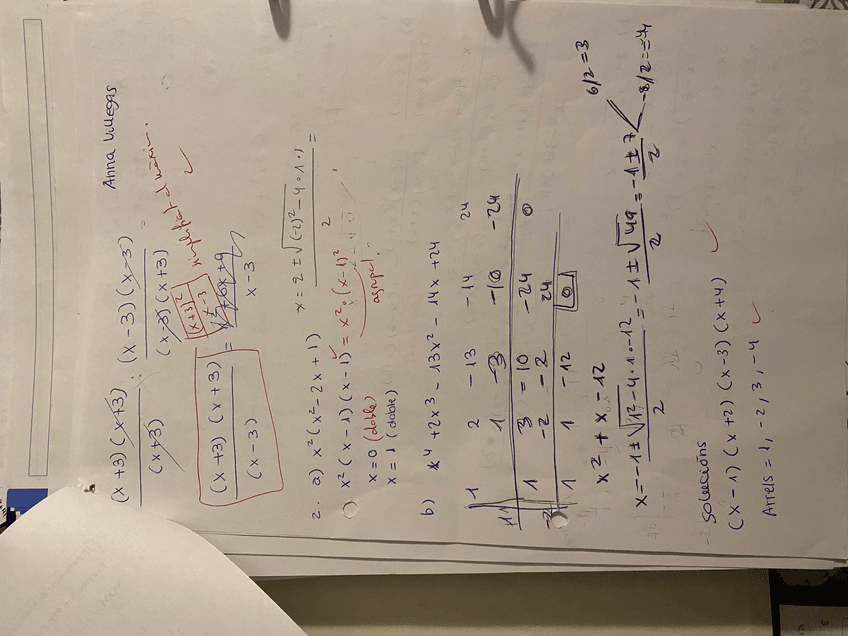 Anna Villegas
(x+3)(x+3) / (x+3) : (x-3)(x-3) / (x-3)(x+3) =
(x+3)(x+3) / (x-3) = x²+6x+9 / x-3
(x+3)² / x-3 simplificat al màxim.
2. a) x²(x²-2x+1) x = 2 ± √(-2)²-4·1·1 / 2 =
x²(x-1)(x-1) = x²·(x-1)²
agrupat.
x=0 (doble)
x=1 (doble)
b) x⁴+2x³-13x²-14x+24
1 2 -13 -14 24
1 1 3 -10 -24
1 3 -10 -24 0
-2 -2 -2 24
1 1 -12 0
x²+x-12
x = -1±√1²-4·1·-12 / 2 = -1±√49 / 2 = -1±7 / 2
6/2=3
-8/2=-4
Solucións
(x-1)(x+2)(x-3)(x+4)
Arrels = 1, -2, 3, -4